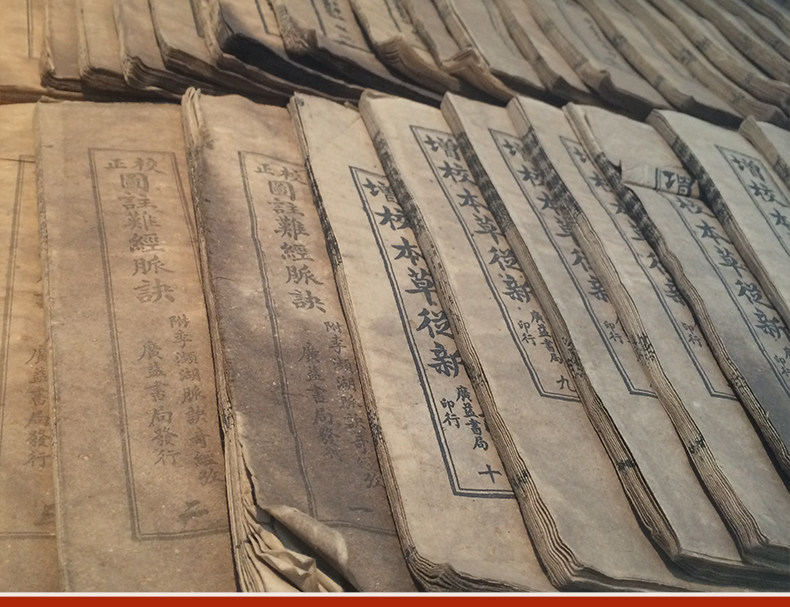 校正
圖註難經脈訣
附李瀕湖脈訣奇經攷
廣益書局發行
二
校正
圖註難經脈訣
附李瀕湖脈訣奇經攷
廣益書局發行
一
增校本草從新
廣益書局
印行
十
增校本草從新
廣益書局
印行
九
增校本草從新
印行
增校本草從新
印行
增校本草從新
廣益書局
印行
增校本草
廣益書局發行